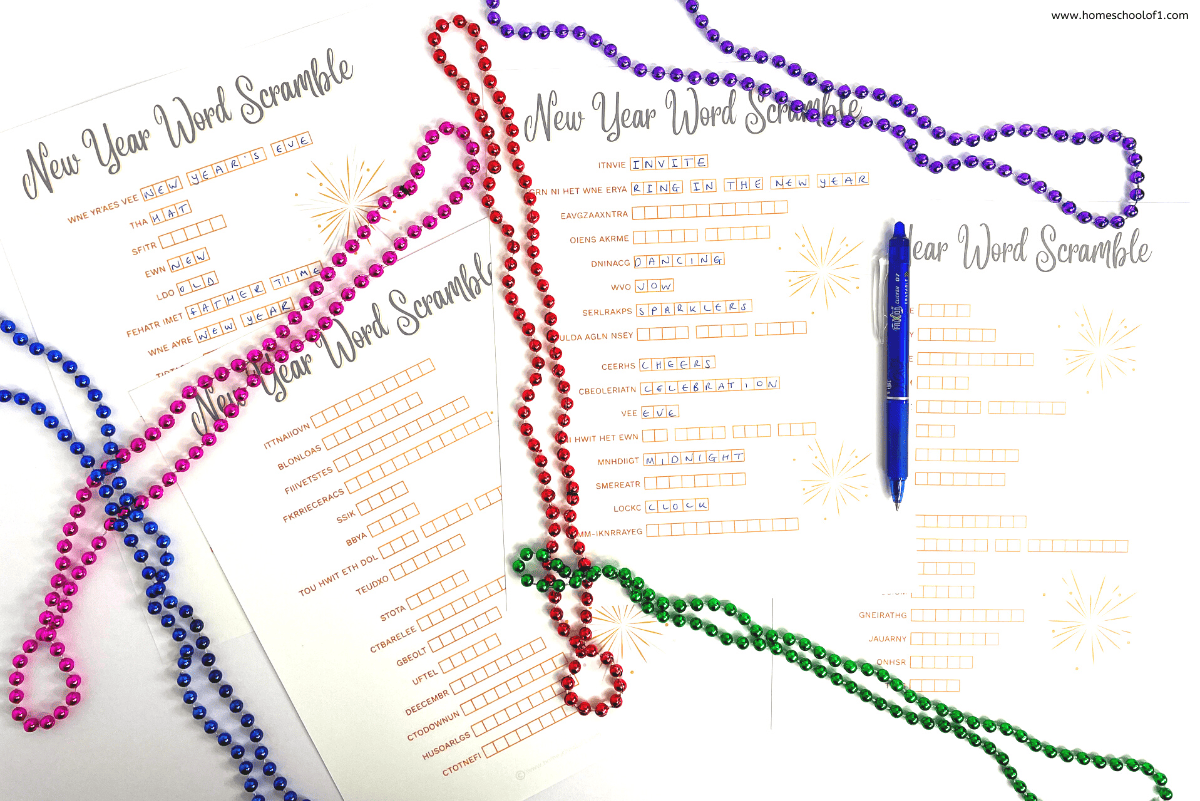 www.homeschoolof1.com
New Year Word Scramble
WNE YR'AES VEE NEW YEAR'S EVE
THA HAT
SFITR
EWN NEW
LDO OLD
FEHATR IMET FATHER TIME
WNE AYRE NEW YEAR
Year Word Scramble
ITTNAIIOVN
BLONLOAS
FIIIVETSTES
FKRRIECERACS
SSIK
BBYA
TOU HWIT ETH DOL
TEUDXO
STOTA
CTBARELEE
GBEOLT
UFTEL
DEECEMBR
CTODOWNUN
HUSOARLGS
CTOTNEFI
New Year Word Scramble
ITNVIE INVITE
RN NI HET WNE ERYA RING IN THE NEW YEAR
EAVGZAAXNTRA
OIENS AKRME
DNINACG DANCING
WVO VOW
SERLRAKPS SPARKLERS
ULDA AGLN NSEY
CEERHS CHEERS
CBEOLERIATN CELEBRATION
VEE EVE
HWIT HET EWN
MNHDIIGT MIDNIGHT
SMEREATR
LOCKC CLOCK
MM-IKNRRAYEG
Year Word Scramble
E
Y
E
GNEIRATHG
JAUARNY
DNHSR
FRIXION CLICKER 0.7